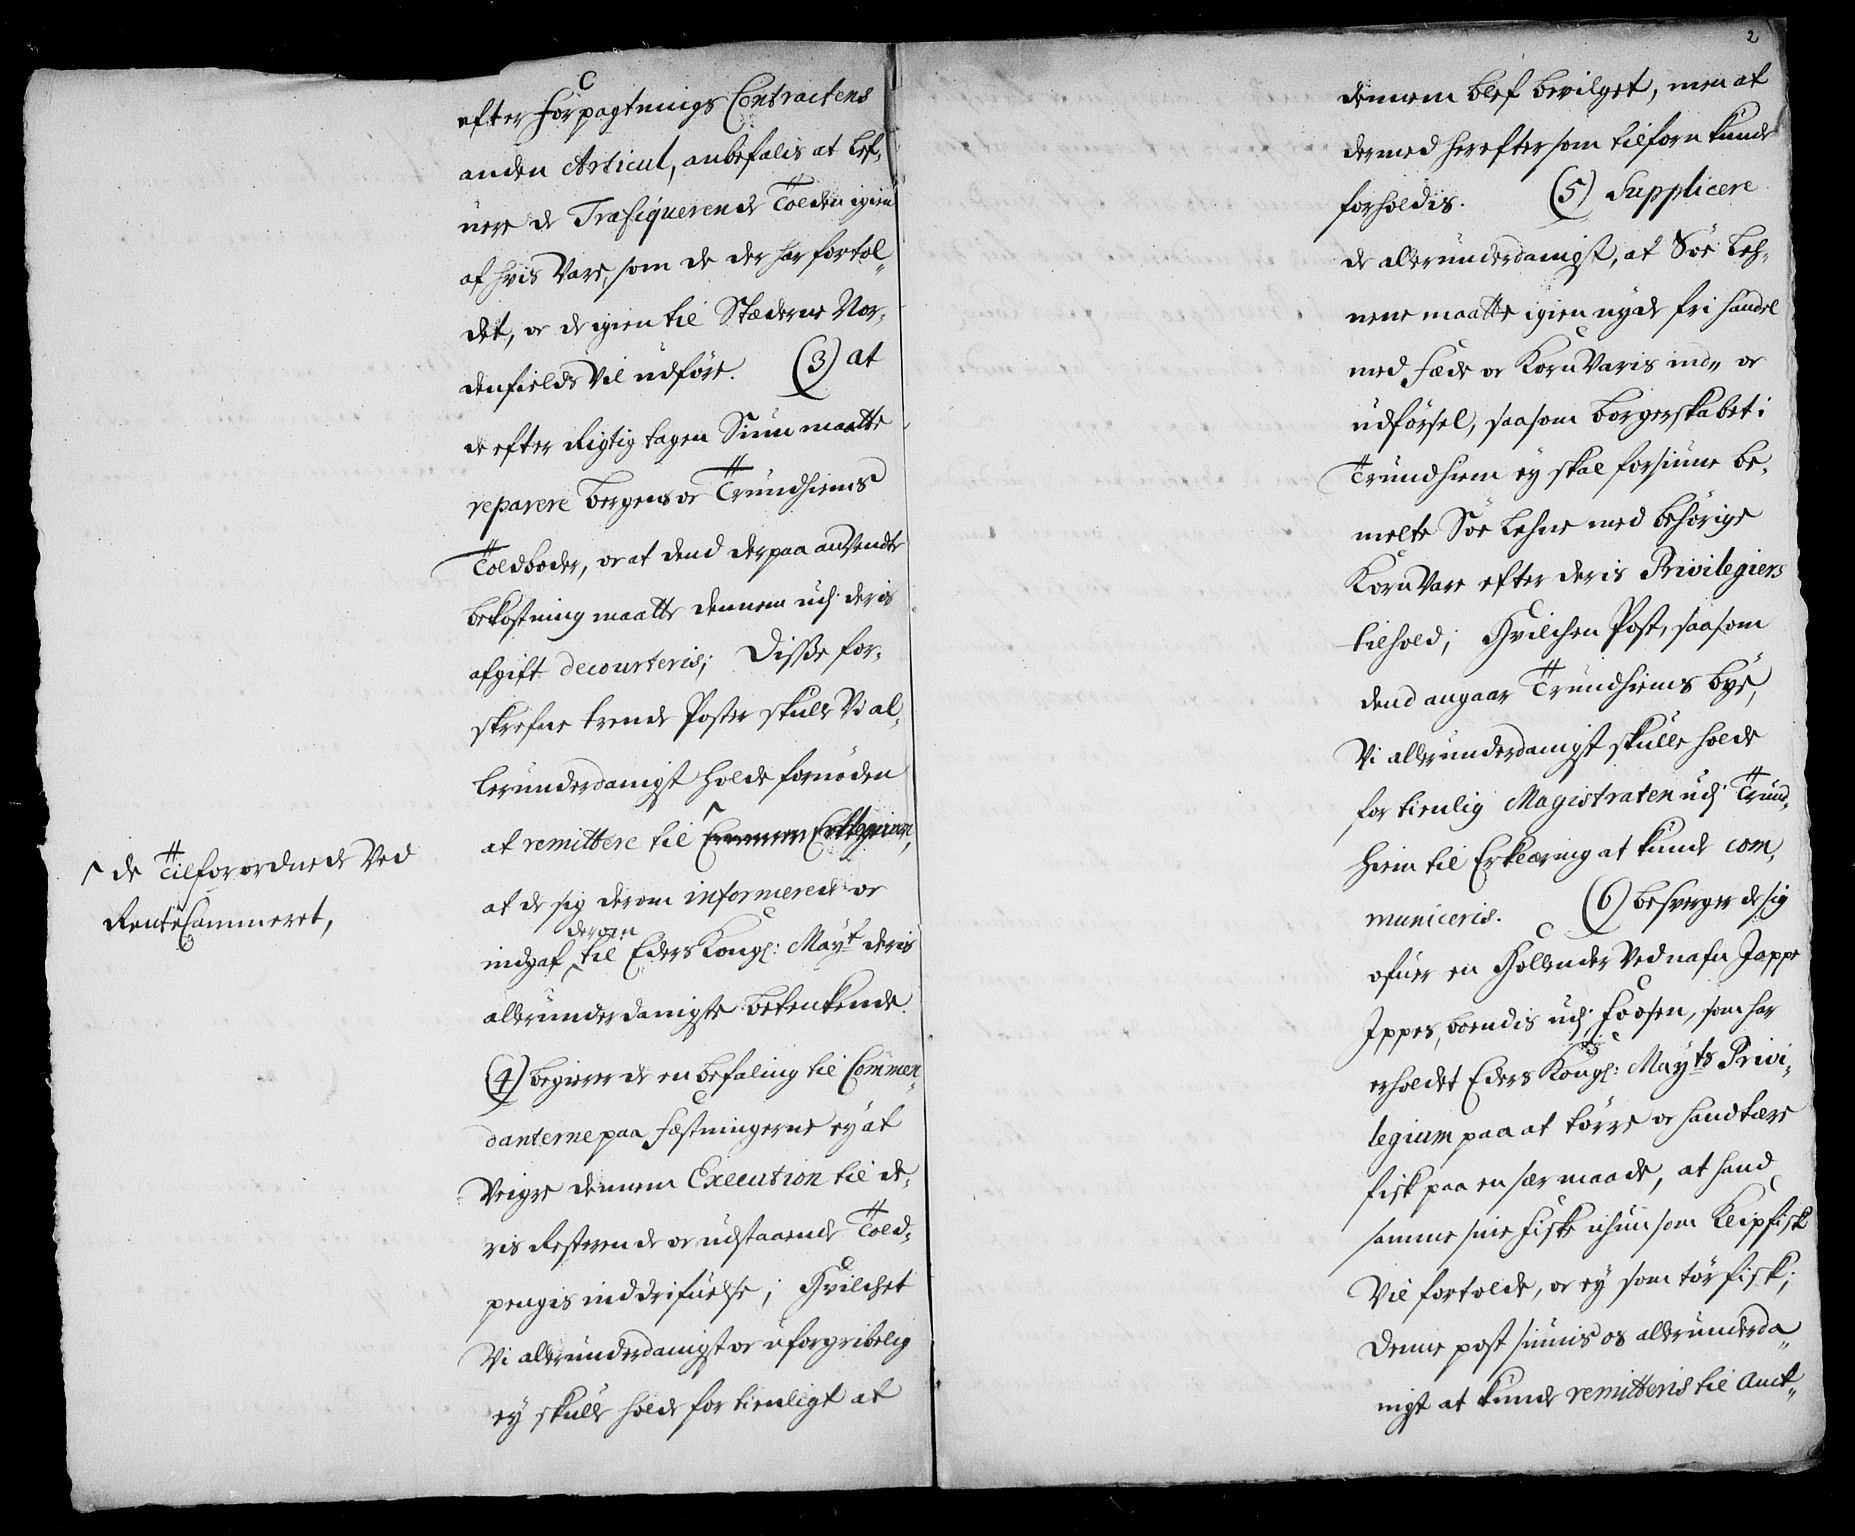 efter Forpagtnings Contractens
anden Articul, anbefalis at lef-
uere de Trafiquerende Tolden igien
af hvis Vare, som de der har fortol-
det, oc de igien til Stæderne Nor-
denfields Vil udföre. (3) at
de efter Rigtig tagen Siun maatte
reparere Bergens oc Trundhiems
Toldboder, oc at dend derpaa anVendte
bekostning maatte dennem udj deris
afgift decourteris; Disse for-
skrefne trende Poster skulle Vi al-
lerunderdanigst holde fornöden
at remittere til
^ de Tilforordnede Ved
RenteCammeret,
at de sig derom informerede oc
derom
indgaf til Eders Kongl: Mayt deris
allerunderdanigste betenkende.
(4) begierer de en befaling til Commen-
danterne paa Fæstningerne ey at
Veigre dennem Execution til de-
ris Resterende oc udstaaende Told-
pengis inddrifuelse; Hvilchet
Vi allerunderdanigst oc uforgribelig
ey skulle holde for tienligt at
2
dennem blef bevilget, men at
dermed herefter som tilforn kunde
forholdis. (5) Supplicere
de allerunderdanigst, at Söe Leh-
nene maatte igien nyde fri handel
med Fæde oc Korn Varis ind- oc
udförsel, saasom borgerskabet i
Trundhiem ey skal forsiune be-
melte Söe Lehne med behörige
Korn Vare efter deris Privilegiers
tilhold; Hvilchen Post, saasom
dend angaar Trundhiems bye,
Vi allerunderdanigst skulle holde
for tienlig Magistraten udj Trund-
hiem til Erklæring at kunde com-
municeris. (6) besverger de sig
ofuer en Hollender Ved nafn Jappe
Ippes, boendis udj Foosen, som har
erholdet Eders Kongl: Mayts Privi-
legium paa at törre oc handtære
fisk paa en sær maade, at hand
samme sine Fiske ichun som Klipfisk
Vil fortolde, oc ey som törfisk;
Denne post siunis os allerunderda-
nigst at kunde remitteris til Amt-